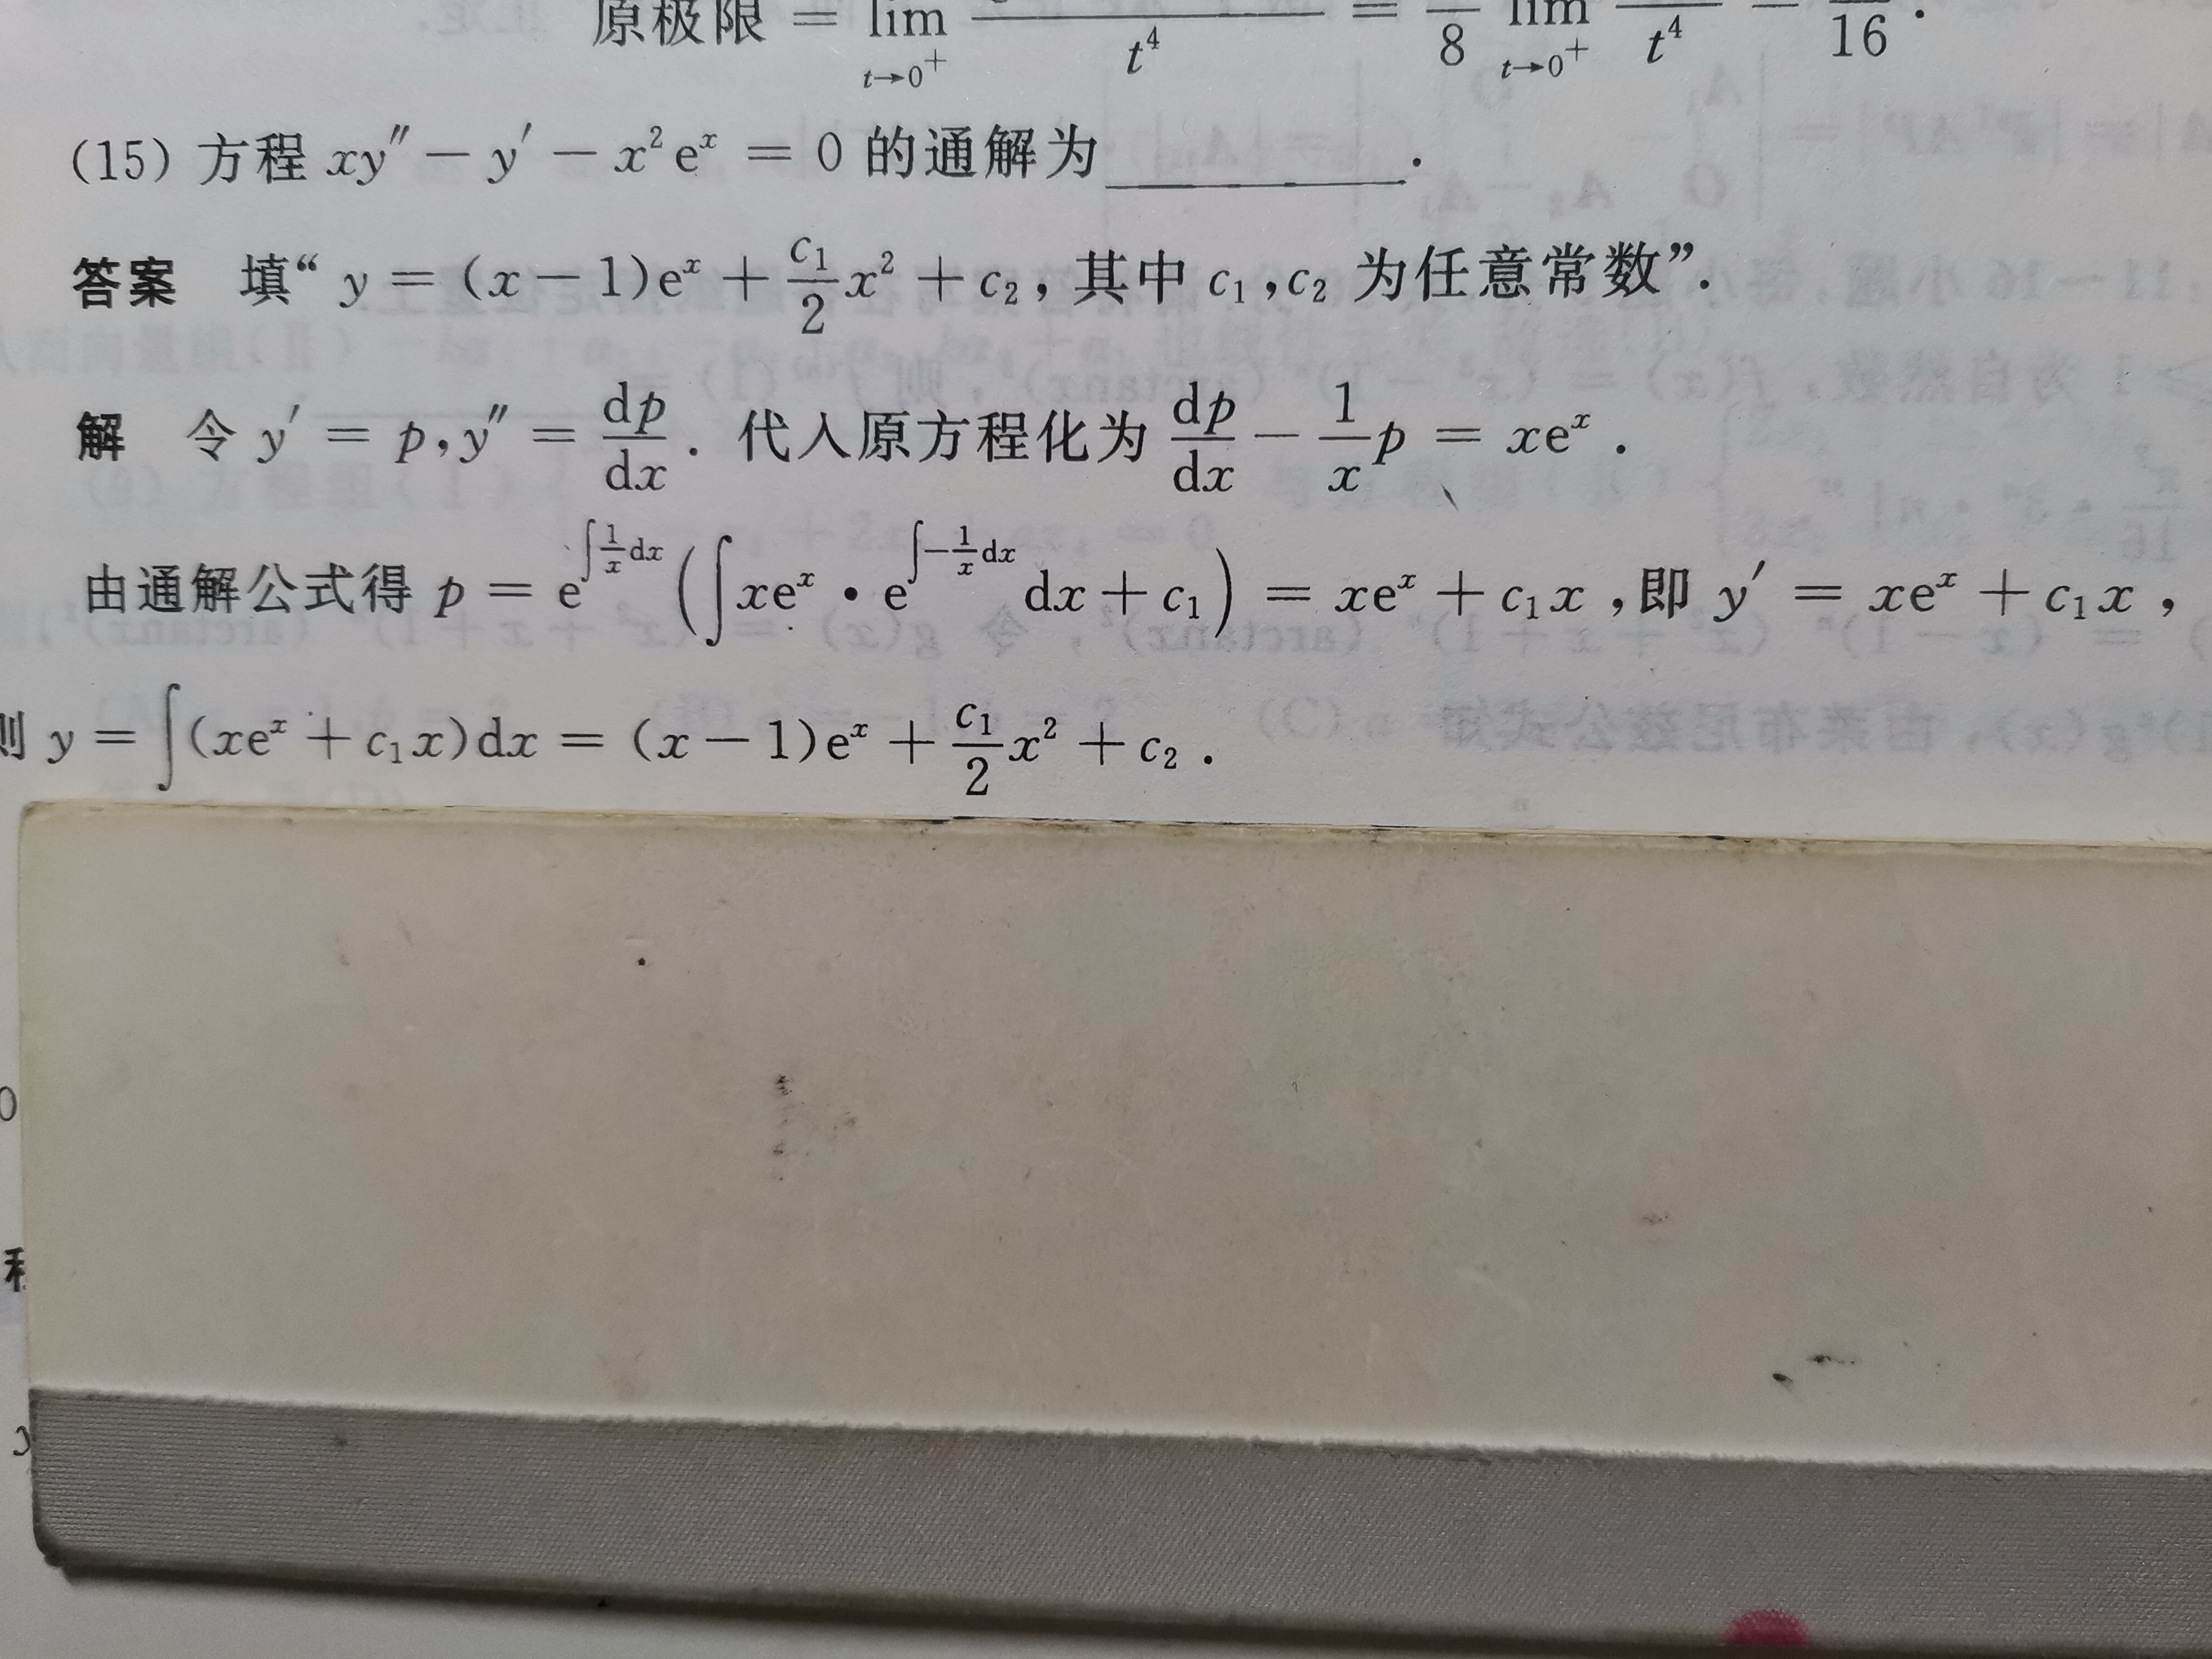 原极限 = lim t→0⁺ —— t⁴ = — 8 lim t→0⁺ —— t⁴ = — 16 .
(15) 方程 xy″ − y′ − x²eˣ = 0 的通解为________.
答案 填“ y = (x−1)eˣ + c₁/2 x² + c₂, 其中 c₁,c₂ 为任意常数”.
解 令 y′ = p, y″ = dp/dx . 代入原方程化为 dp/dx − 1/x p = xeˣ .
由通解公式得 p = e^{∫1/x dx} (∫ xeˣ • e^{∫−1/x dx} dx + c₁) = xeˣ + c₁x ,即 y′ = xeˣ + c₁x ,
则 y = ∫(xeˣ + c₁x)dx = (x−1)eˣ + c₁/2 x² + c₂ .